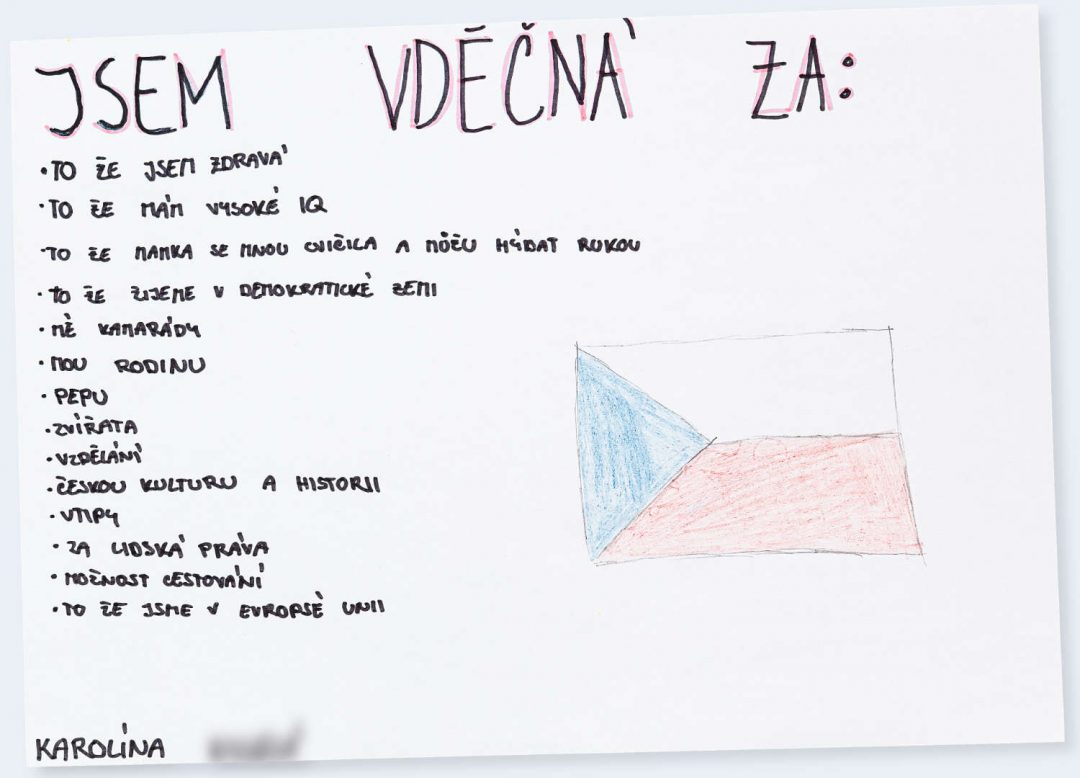 JSEM VDĚČNÁ ZA:
•TO ŽE JSEM ZDRAVÁ
•TO ŽE MÁM VYSOKÉ IQ
•TO ŽE MAMKA SE MNOU CVIČILA A MŮŽU HÝBAT RUKOU
•TO ŽE ŽIJEME V DEMOKRATICKÉ ZEMI
•MÉ KAMARÁDY
•MOU RODINU
•PEPU
•ZVÍŘATA
•VZDĚLÁNÍ
•ČESKOU KULTURU A HISTORII
•VTIPY
•ZA LIDSKÁ PRÁVA
•MOŽNOST CESTOVÁNÍ
•TO ŽE JSME V EVROPSÉ UNII
KAROLÍNA